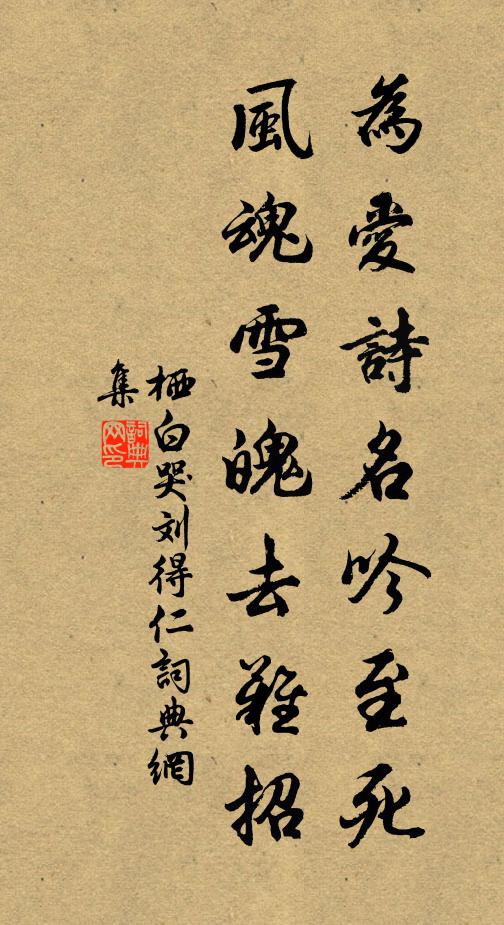 為愛詩名吟至死
風魂雪魄去難招
栖白哭刘得仁詞典網
集
詞典网印